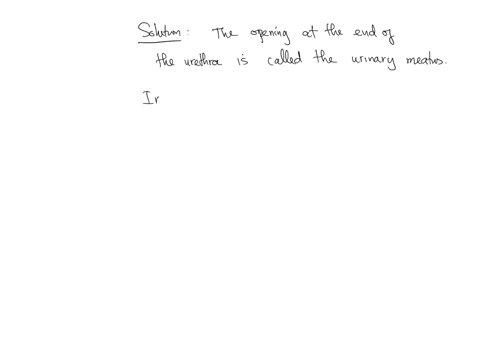 Solution: The opening at the end of
the urethra is called the urinary meatus.
Ir